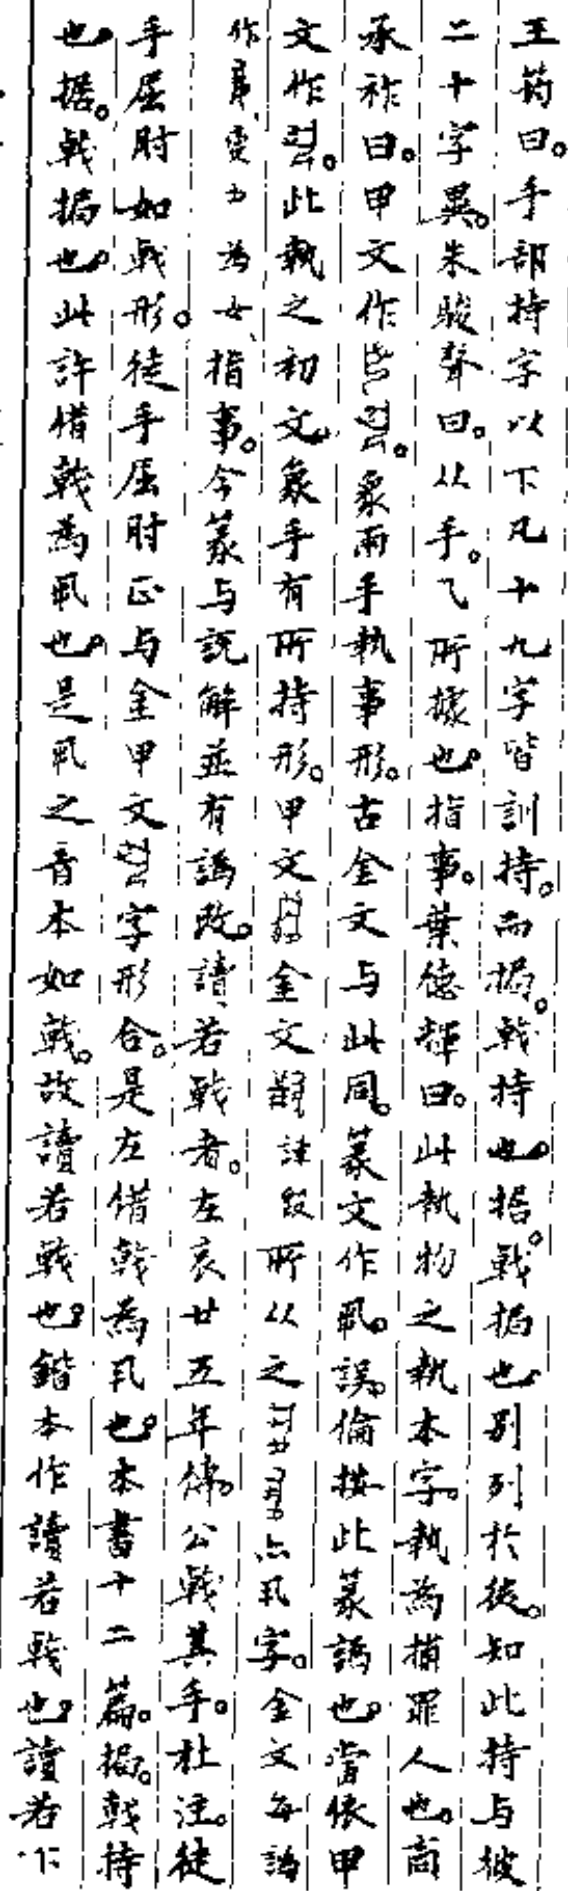 王筠曰。手部持字以下凡十九字皆訓持。而挶。戟持也。据。戟挶也。別列於後。知此持与彼
二十字異。朱駿聲曰。从手。乁所據也。指事。葉德輝曰。此執物之執本字。執為捕罪人也。商
承祚曰。甲文作。象兩手執事形。古金文与此同。篆文作丮。誤。倫按此篆譌也。當依甲
文作。此執之初文。象手有所持形。甲文金文諸叚所从之亦丮字。金文每譌
作變為女、指事。今篆与說解並有譌改。讀若戟者。左哀廿五年傳。公戟其手。杜注。徒
手屈肘如戟形。徒手屈肘正与金甲文字形合。是左借戟為丮也。本書十二篇。挶。戟持
也。据。戟挶也。此許借戟為丮也。是丮之音本如戟。故讀若戟也。鍇本作讀若戟也。讀若下